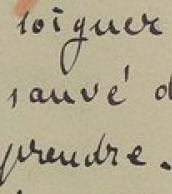 soigner
sauvé d
prendre.